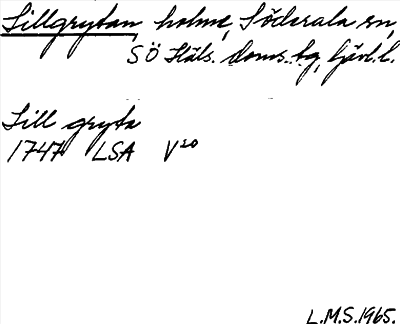 Sillgrytan, holme, Söderala sn,
SÖ Häls. doms. tg, Gävl.l.
Sill gryta
1747 LSA V20
L.M.S.1965.